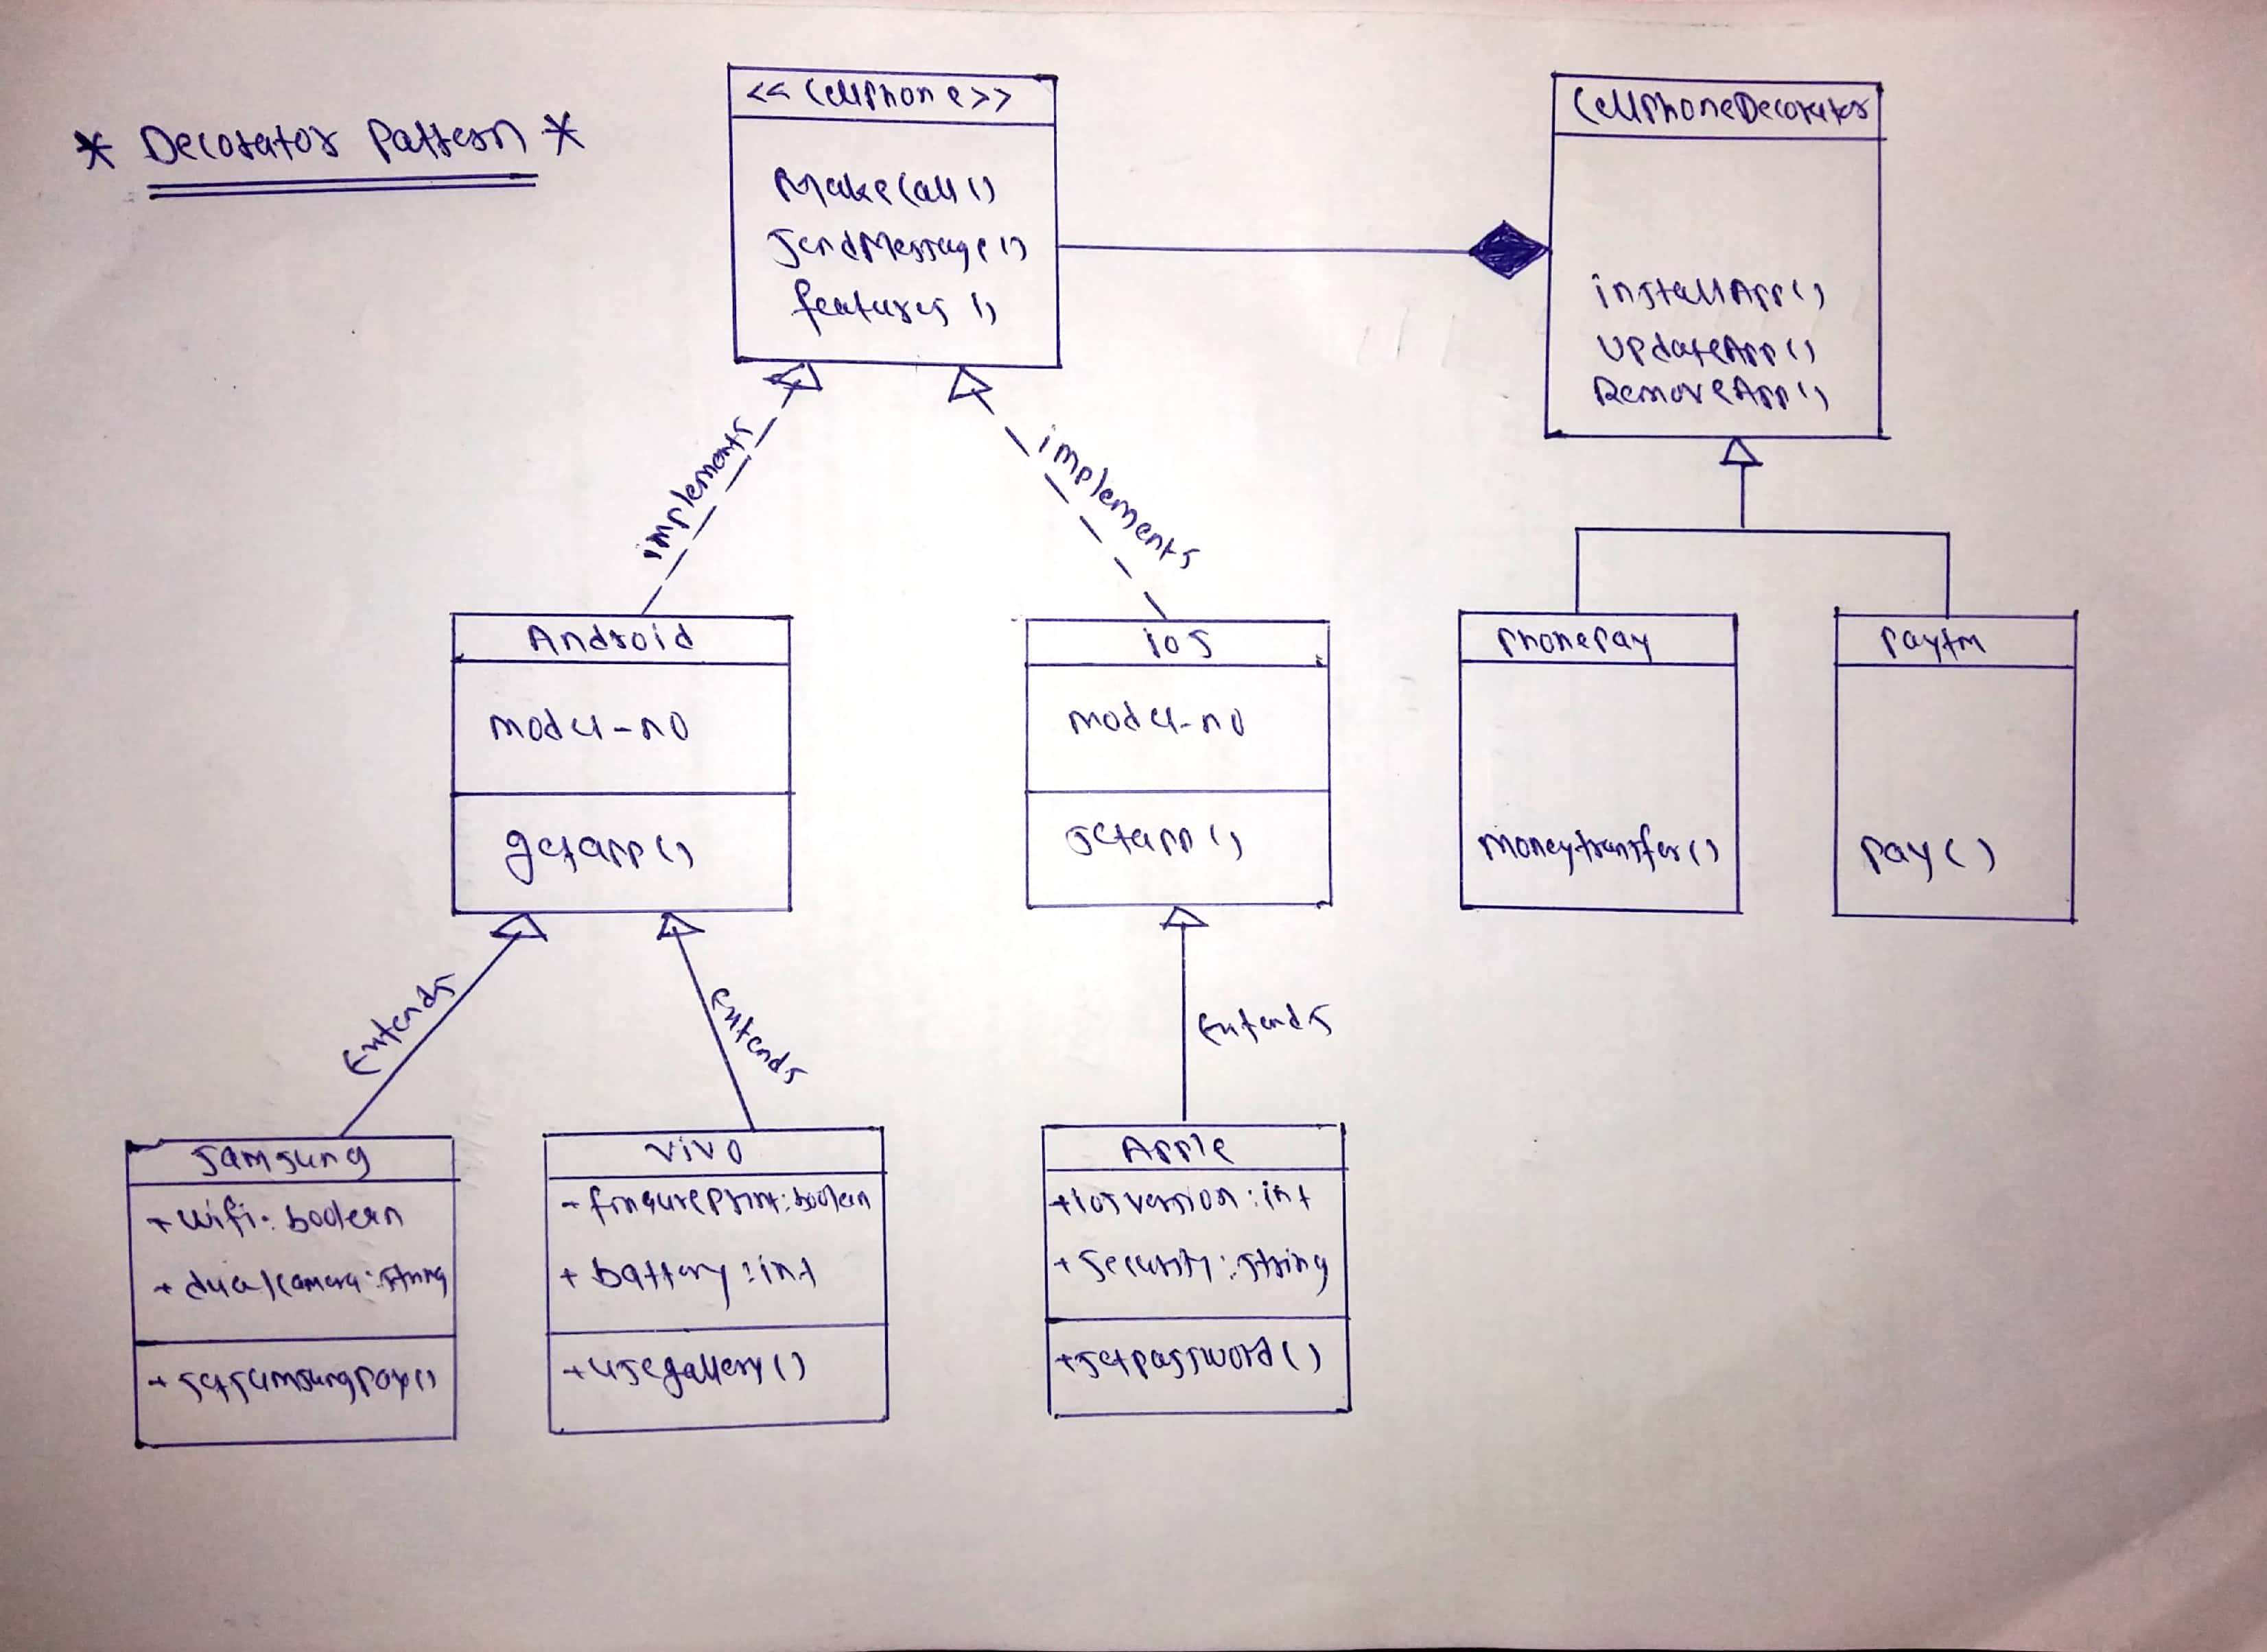 * Decorator Pattern *
<< Cellphone >>
Makecall()
SendMessage()
features()
CellphoneDecorator
installApp()
UpdateApp()
RemoveApp()
implements
implements
Android
model-no
getapp()
ios
model-no
setapp()
phonepay
moneytransfer()
paytm
pay()
Extends
Extends
Extends
Samsung
+ wifi: boolean
+ dualcamera: string
+ setsamsungpay()
vivo
- fingureprint: boolean
+ battery: int
+ usegallery()
Apple
+ iosversion: int
+ security: string
+ setpassword()